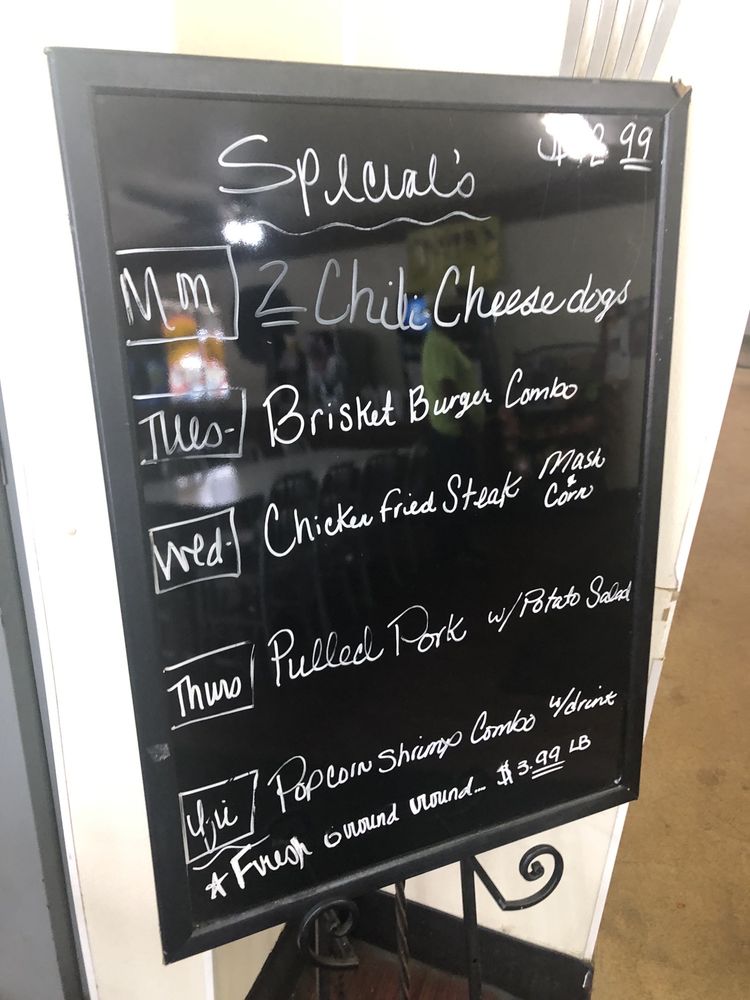 Special's
99
Mon 2 Chili Cheese dogs
Tues- Brisket Burger Combo
Wed- Chicken Fried Steak Mash & Corn
Thurs Pulled Pork w/Potato Salad
Fri Popcorn Shrimp Combo w/drink
Fresh Ground round... $3.99 LB